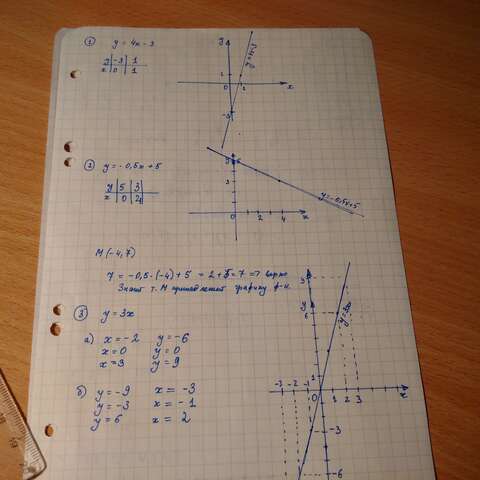 ① y = 4x - 3
y | -3 | 1
x | 0 | 1
y
1
0 1 x
-3
y=4x-3
② y = -0,5x + 5
y | 5 | 3
x | 0 | 4
y
5
3
0 2 4 x
y=-0,5x+5
M(-4,7)
7 = -0,5·(-4)+5 = 2+5=7 => верно
Значит т. M принадлежит графику ф-и.
③ y = 3x
а) x = -2 y = -6
x = 0 y = 0
x = 3 y = 9
б) y = -9 x = -3
y = -3 x = -1
y = 6 x = 2
y
6
y=3x
1
-3 -2 -1 0 1 2 3 x
-3
-6